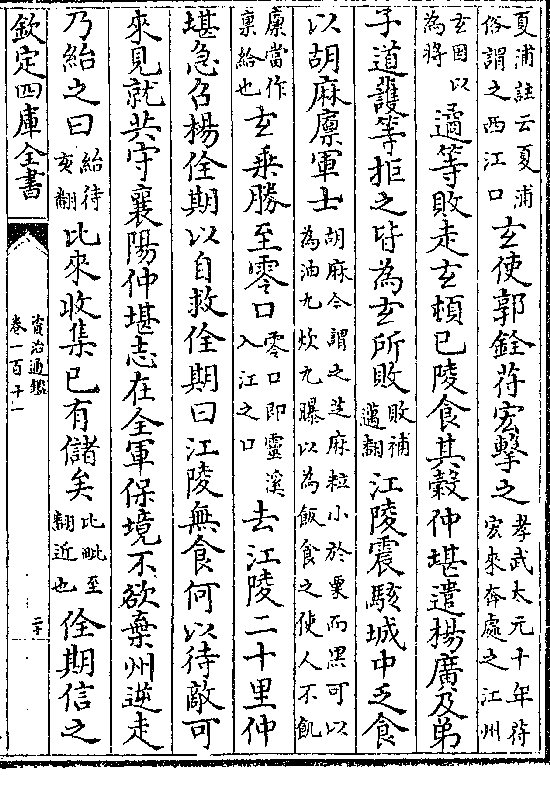 夏浦註云夏浦
俗謂之西江口
玄使郭銓苻宏擊之
孝武太元十年苻
宏來奔處之江州
玄因以
為將
遹等敗走玄頓巴陵食其穀仲堪遣楊廣及弟
子道護等拒之皆為玄所敗
敗補
邁翻
江陵震駭城中乏食
以胡麻廪軍士
胡麻今謂之芝麻粒小於粟而黑可以
為油九炊九曝以為飯食之使人不飢
廪當作
稟給也
玄乗勝至零口
零口即靈溪
入江之口
去江陵二十里仲
堪急召楊佺期以自救佺期曰江陵無食何以待敵可
來見就共守襄陽仲堪志在全軍保境不欲棄州逆走
乃紿之曰
紿待
亥翻
比來收集已有儲矣
比毗至
翻近也
佺期信之
欽定四庫全書
資治通鑑
卷一百十一
二十